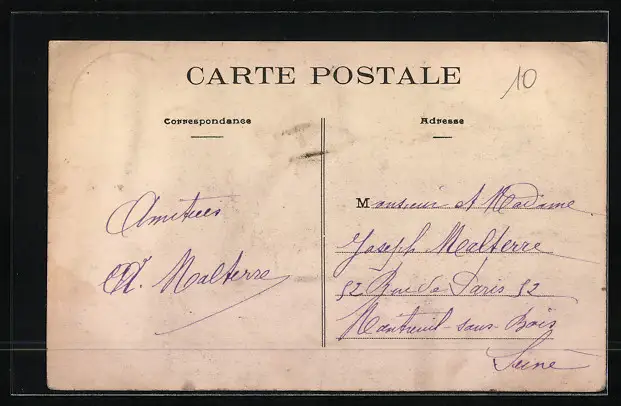 CARTE POSTALE
10
Correspondance
Adresse
Amitiés
Malterre
Monsieur et Madame
Joseph Malterre
52 Rue de Paris 52
Montreuil-sous-Bois
Seine